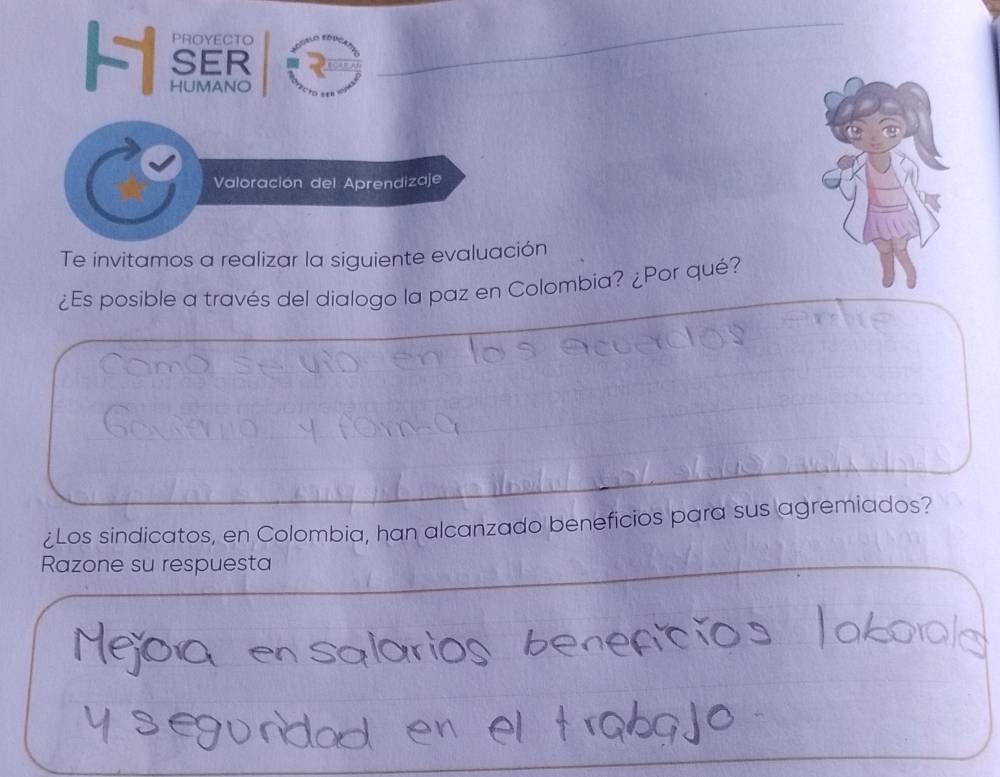 PROYECTO
SER
HUMANO
MODELO EDUCATIVO
REGULAR
PROYECTO SER HUMANO
Valoración del Aprendizaje
Te invitamos a realizar la siguiente evaluación
¿Es posible a través del dialogo la paz en Colombia? ¿Por qué?
Como se vio en los acuerdos entre
Govierno y
¿Los sindicatos, en Colombia, han alcanzado beneficios para sus agremiados?
Razone su respuesta
Mejora en salarios beneficios laborales
y seguridad en el trabajo